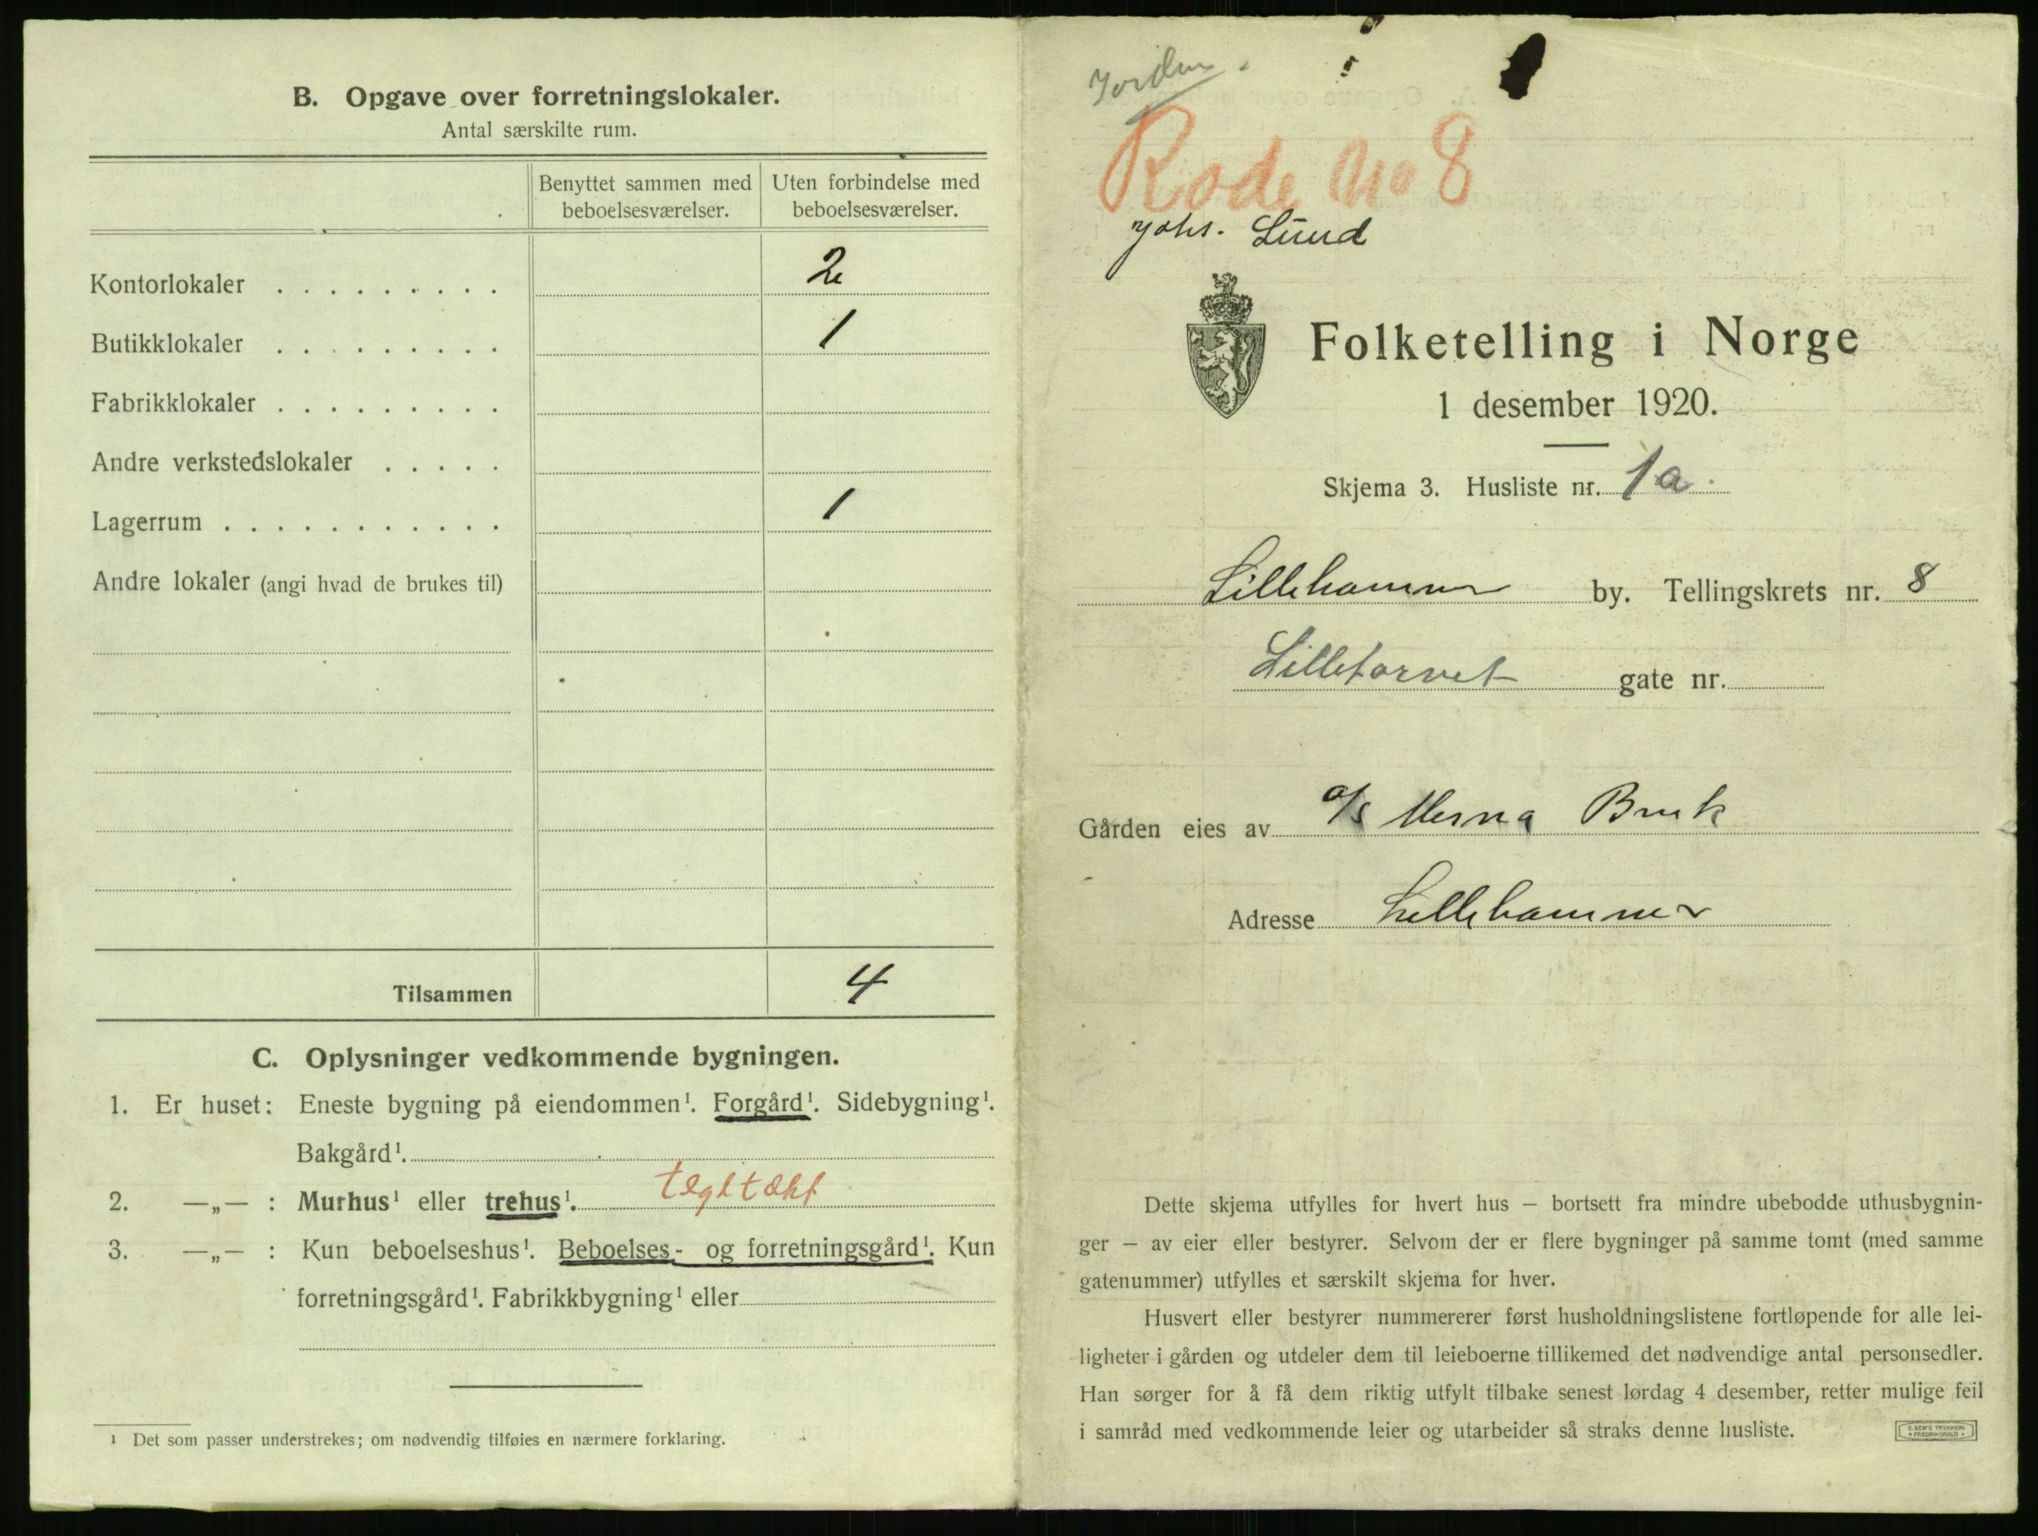 B. Opgave over forretningslokaler.
Antal særskilte rum.
Benyttet sammen med beboelsesværelser.
Uten forbindelse med beboelsesværelser.
Kontorlokaler . . . . . . . . . 2
Butikklokaler . . . . . . . . . 1
Fabrikklokaler . . . . . . . . .
Andre verkstedslokaler . . . . .
Lagerrum . . . . . . . . . . . . 1
Andre lokaler (angi hvad de brukes til)
Tilsammen 4
C. Oplysninger vedkommende bygningen.
1. Er huset: Eneste bygning på eiendommen¹. Forgård¹. Sidebygning¹.
Bakgård¹.
2. —„— : Murhus¹ eller trehus¹. tegltækt
3. —„— : Kun beboelseshus¹. Beboelses- og forretningsgård¹. Kun
forretningsgård¹. Fabrikkbygning¹ eller
¹ Det som passer understrekes; om nødvendig tilføies en nærmere forklaring.
Jorden.
Rode No 8
Johs. Lund
Folketelling i Norge
1 desember 1920.
Skjema 3. Husliste nr. 1a.
Lillehammer by. Tellingskrets nr. 8
Lilletorvet gate nr.
Gården eies av a/s Mesna Bruk
Adresse Lillehammer
Dette skjema utfylles for hvert hus — bortsett fra mindre ubebodde uthusbygnin-
ger — av eier eller bestyrer. Selvom der er flere bygninger på samme tomt (med samme
gatenummer) utfylles et særskilt skjema for hver.
Husvert eller bestyrer nummererer først husholdningslistene fortløpende for alle lei-
ligheter i gården og utdeler dem til leieboerne tillikemed det nødvendige antal personsedler.
Han sørger for å få dem riktig utfylt tilbake senest lørdag 4 desember, retter mulige feil
i samråd med vedkommende leier og utarbeider så straks denne husliste.